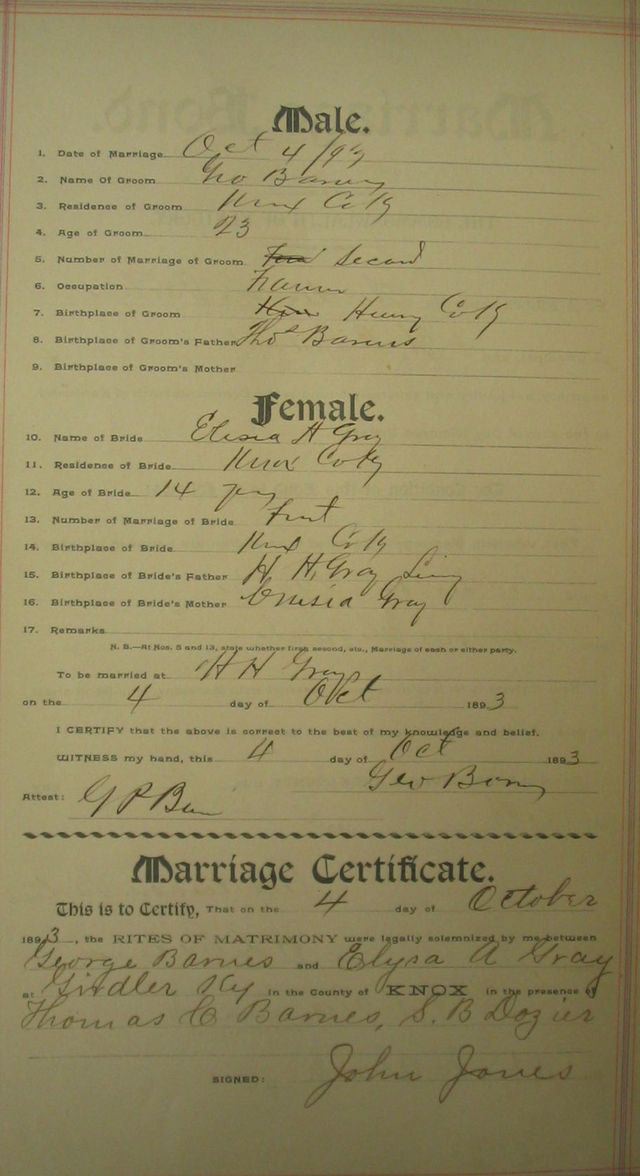 Male.
1. Date of Marriage Oct 4 /93
2. Name Of Groom Geo Barnes
3. Residence of Groom Knox Co Ky
4. Age of Groom 23
5. Number of Marriage of Groom Second
6. Occupation Farmer
7. Birthplace of Groom Henry Co Ky
8. Birthplace of Groom's Father Thos Barnes
9. Birthplace of Groom's Mother
Female.
10. Name of Bride A Gray
11. Residence of Bride Knox Co Ky
12. Age of Bride 14 yrs
13. Number of Marriage of Bride First
14. Birthplace of Bride Knox Co Ky
15. Birthplace of Bride's Father H H Gray Living
16. Birthplace of Bride's Mother Gray
17. Remarks
N. B.—At Nos. 5 and 13, state whether first second, etc., Marriage of each or either party.
To be married at H H Grays
on the 4 day of Oct 1893
I CERTIFY that the above is correct to the best of my knowledge and belief.
WITNESS my hand, this 4 day of Oct 1893
Geo Barnes
Attest: G P
Marriage Certificate.
This is to Certify, That on the 4 day of October
1893, the RITES OF MATRIMONY were legally solemnized by me between
George Barnes and Elysa A Gray
at Girdler Ky in the County of KNOX in the presence of
Thomas C Barnes, S. B Dozier
SIGNED: John Jones